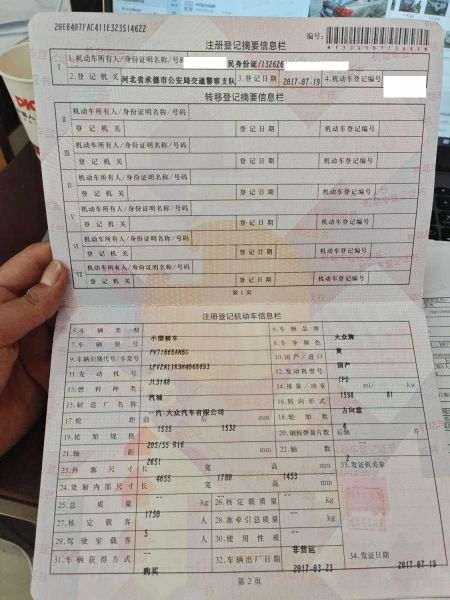 20E6407FAC411E323S14622
编号:
注册登记摘要信息栏
I 1.机动车所有人/身份证明名称/号码 民身份证/132626
2.登记机关 河北省承德市公安局交通警察支队 3.登记日期 2017-07-19 4.机动车登记编号
转移登记摘要信息栏
II 机动车所有人/身份证明名称/号码
登记机关 登记日期 机动车登记编号
III 机动车所有人/身份证明名称/号码
登记机关 登记日期 机动车登记编号
IV 机动车所有人/身份证明名称/号码
登记机关 登记日期 机动车登记编号
V 机动车所有人/身份证明名称/号码
登记机关 登记日期 机动车登记编号
VI 机动车所有人/身份证明名称/号码
登记机关 登记日期 机动车登记编号
VII 机动车所有人/身份证明名称/号码
登记机关 登记日期 机动车登记编号
第1页
注册登记机动车信息栏
5.车辆类型 小型轿车 6.车辆品牌 大众牌
7.车辆型号 8.车身颜色 黄
9.车辆识别代号/车架号 10.国产/进口 国产
11.发动机号 12.发动机型号
13.燃料种类 汽油 14.排量/功率 1598 ml/ 81 kw
15.制造厂名称 一汽-大众汽车有限公司 16.转向形式 方向盘
17.轮距 前 1535 后 1532 mm 18.轮胎数 4
19.轮胎规格 205/55 R16 20.钢板弹簧片数 后轴 -- 片
21.轴距 2651 mm 22.轴数 2
23.外廓尺寸 长 4655 宽 1780 高 1453 mm 33.发证机关章
24.货箱内部尺寸 长 -- 宽 -- 高 -- mm
25.总质量 1750 kg 26.核定载质量 -- kg
27.核定载客 5 人 28.准牵引总质量 -- kg
29.驾驶室载客 -- 人 30.使用性质 非营运
31.车辆获得方式 购买 32.车辆出厂日期 2017-03-23 34.发证日期 2017-07-19
第2页